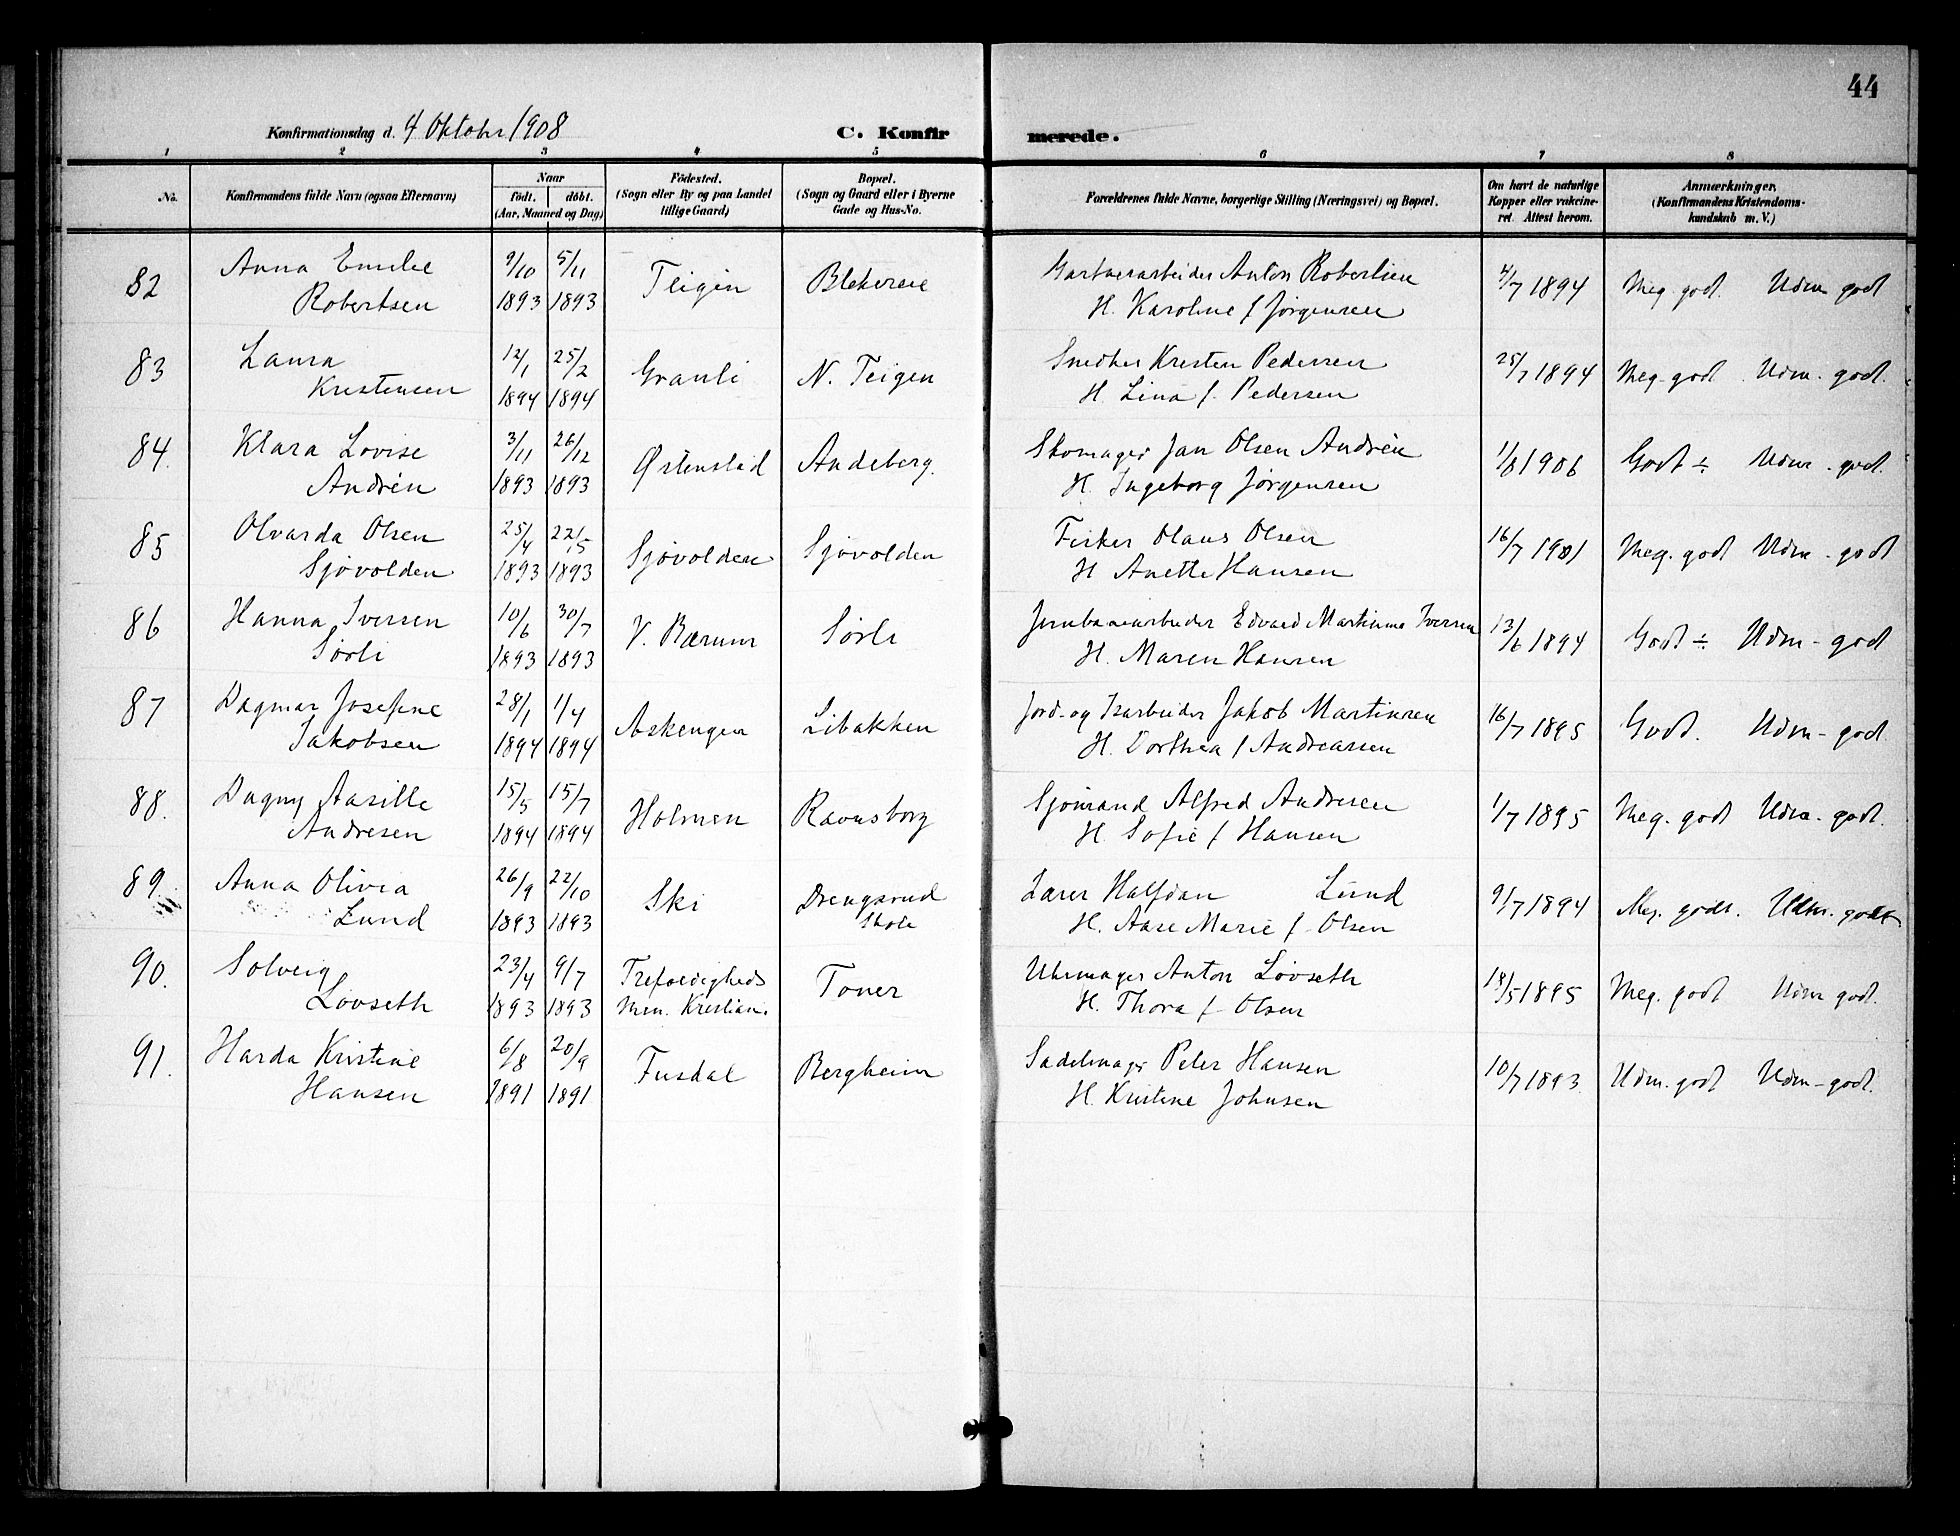 44
Konfirmationsdag d. 4 Oktobr 1908 C. Konfirmerede.
1 2 3 4 5 6 7 8
No. Konfirmandens fulde Navn (ogsaa Efternavn) Naar födt. döbt. (Aar, Maaned og Dag) Födested. (Sogn eller By og paa Landet tillige Gaard) Bopæl. (Sogn og Gaard eller i Byerne Gade og Hus-No. Forældrenes fulde Navne, borgerlige Stilling (Næringsvei) og Bopæl. Om havt de naturlige Kopper eller vakcineret. Attest herom. Anmærkninger. (Konfirmandens Kristendomskundskab m. V.)
82 Anna Emilie 9/10 5/11 Teigen Blekereie Gartnerarbeider Anton Robertsen 4/7 1894 Meg. godt. Udm godt
Robertsen 1893 1893 H. Karoline f Jørgensen
83 Laura 12/1 25/2 Granli N. Teigen Snedker Kresten Pedersen 25/7 1894 Meg. godt. Udm. godt.
Kristensen 1894 1894 H. Lina f. Pedersen
84. Klara Lovise 3/11 26/12 Østenstad Andeberg. Skomager Jan Olsen Andrén 1/8 1906 Godt ÷ Udm. godt.
Andrén 1893 1893 H. Ingeborg Jørgensen
85 Olvarda Olsen 25/4 22/5 Sjøvolden Sjøvolden Fisker Olaus Olsen 16/7 1901 Meg. godt Udm. godt
Sjøvolden 1893 1893 H Anette Hansen
86 Hanna Iversen 10/6 30/7 V. Bærum Sørli Jernbanearbeider Edvard Martinius Iversen 13/6 1894 Godt ÷ Udm - godt
Sørli 1893 1893 H. Maren Hansen
87 Dagmar Josefine 28/1 1/4 Askengen Libakken Jord- og Isarbeider Jakob Martinsen 16/7 1895 Godt. Udm - godt.
Jakobsen 1894 1894 H. Dorthea f Andreassen
88. Dagny Aasille 15/5 15/7 Holmen Ravnsborg Sjömand Alfred Andresen 1/7 1895 Meg. godt Udm. godt.
Andresen 1894 1894 H. Sofie f Hansen
89. Anna Olivia 26/9 22/10 Ski Drengsrud Lærer Halfdan Lund 9/7 1894 Meg. godt. Udm. godt
Lund 1893 1893 Skole H. Aase Marie f. Olsen
90. Solveig 23/4 9/7 Trefoldigheds Toner Uhrmager Anton Lövseth 18/5 1895 Meg. godt Udm godt.
Lövseth 1893 1893 Mm. Kristian. H. Thora f. Olsen
91. Harda Kristine 6/8 20/9 Fusdal Bergheim Sadelmager Peter Hansen 10/7 1893. Udm. godt Udm - godt.
Hansen 1891 1891 H. Kristine Johnsen